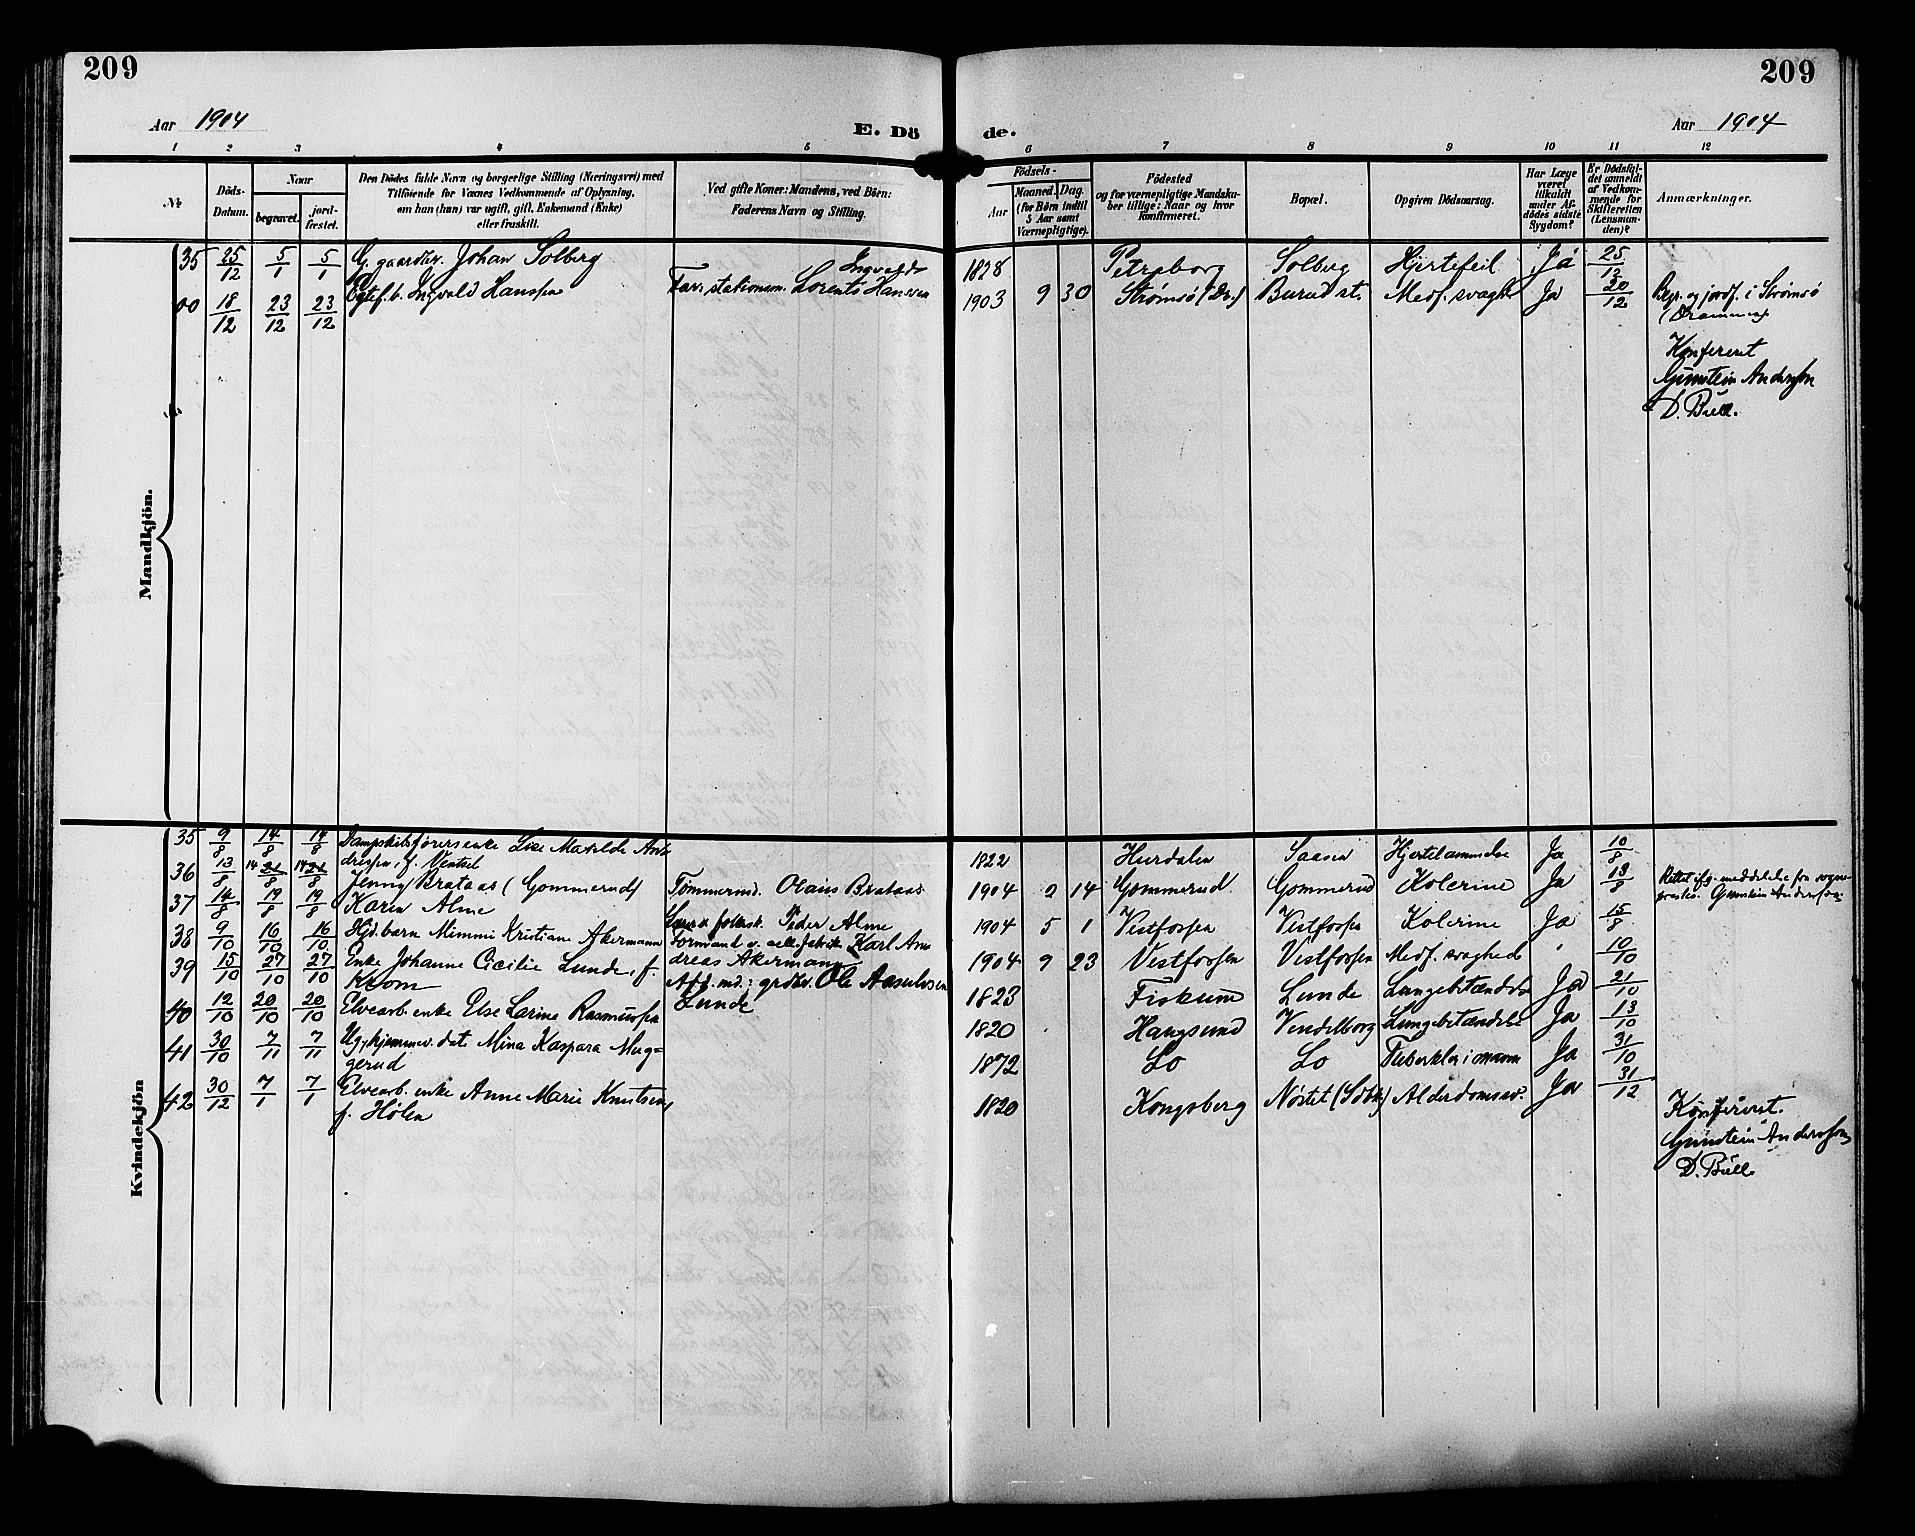 209
209
Aar 1904
E. Dö
de.
Aar 1904
1 2 3 4 5 6 7 8 9 10 11 12
№
Döds-
Datum.
Naar
begravet.
jord-
fæstet.
Den Dödes fulde Navn og borgerlige Stilling (Næringsvei) med
Tilföiende for Voxnes Vedkommende af Oplysning,
om han (hun) var ugift, gift, Enkemand (Enke)
eller fraskilt.
Ved gifte Koner: Mandens, ved Börn:
Faderens Navn og Stilling.
Födsels-
Aar
Maaned. Dag.
(for Börn indtil
5 Aar samt
Værnepligtige).
Födested
og for værnepligtige Mandska-
ber tillige: Naar og hvor
Konfirmeret.
Bopæl.
Opgiven Dödsaarsag.
Har Læge
været
tilkaldt
under Af-
dödes sidste
Sygdom?
Er Dödsfal-
det anmeldt
af Vedkom-
mende for
Skifteretten
(Lensman-
den)?
Anmærkninger.
Mandkjön.
35 25/12 5/1 5/1 G. gaardbr. Johan Solberg 1828 Solberg Hjertefeil Ja 25/12
00 18/12 23/12 23/12 Egtef. b. Ingvald Hanssen Fav. stationsm. Lorents Ingvald Hanssen 1903 9 30 Strømsö (Dr.) Burud st. Medf. svaghed Ja 20/12 Begr. og jordf. i Strømsö
(Drammen)
Konfereret
Gunstein Anderssen
D. Bull.
Kvindekjön
35 9/8 14/8 14/8 Dampskibsførersenke Lise Matilde An-
dresen, f. Ventsel 1822 Hurdalen Saasen Hjertelammelse Ja 10/8
36 13/8 14 21/8 14 21/8 Jenny Brataas (Gommerud) Tømmermd. Olaus Brataas 1904 2 14 Gommerud Gommerud Kolerine Ja 13/8 Rettet ifg. meddelelse fra sogne-
prest Gunstein Anderssen
37 14/8 19/8 19/8 Karen Alme Peder Alme 1904 5 1 Vestfossen Vestfossen Kolerine Ja 15/8
38 9/10 16/10 16/10 Hjd. barn Mimmi Kristiane Akermann Formand v. cell. fabrik Karl An-
dreas Akermann 1904 9 23 Vestfossen Vestfossen Medf. svaghed 10/10
39 15/10 27/10 27/10 Enke Johanne Cicilie Lunde, f.
Krom Afd. md.: grdbr. Ole Aasulvsen
Lunde 1823 Fiskum Lunde Lungebetændelse Ja 21/10
40 12/10 20/10 20/10 Elvearb. enke Else Larine Rasmussen 1820 Haugsund Vendelborg Lungebetændelse Ja 13/10
41 30/10 7/11 7/11 Ug., hjemmev. dat. Mina Kaspara Mug-
gerud 1872 Lo Lo Ja 31/10
42 30/12 7/1 7/1 Elvearb. enke Anne Marie Knutsen,
f. Hølen 1820 Kongsberg Nöstet Alderdomssv. Ja 31/12
Konfereret.
Gunstein Anderssen
D. Bull